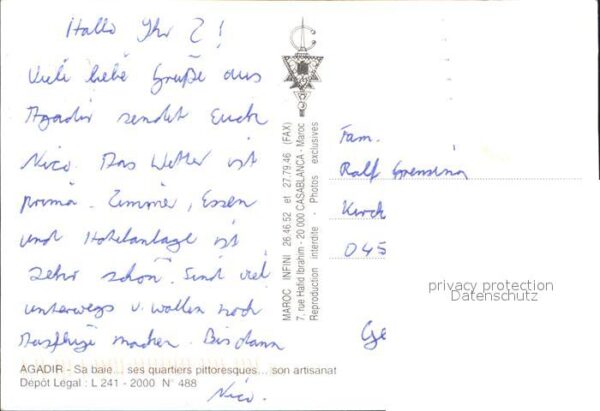 Hallo Ihr 2!
Viele liebe Grüße aus
Agadir sendet Euch
Nico. Das Wetter ist
prima. Zimmer, Essen
und Hotelanlage ist
sehr schön. Sind viel
unterwegs u. wollen noch
Ausflüge machen. Bis dann
Nico.
MAROC INFINI 26.46.52 et 27.79.46 (FAX)
7, rue Hafid Ibrahim - 20 000 CASABLANCA - Maroc
Reproduction interdite - Photos exclusives
Fam.
Ralf
Kirch
045
Ge
privacy protection
Datenschutz
AGADIR - Sa baie... ses quartiers pittoresques... son artisanat
Dépôt Légal : L 241 - 2000 N° 488